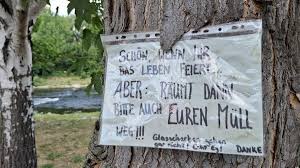 SCHÖN, WENN IHR
DAS LEBEN FEIERT...
ABER: RÄUMT DANN
BITE AUCH EUREN MÜLL
WEG!!!
Glasscherben gehen
gar nicht!
DANKE